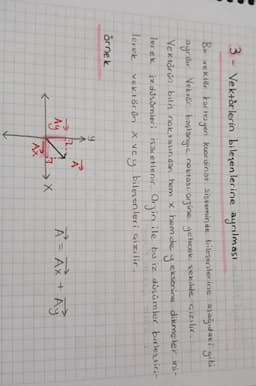 3- Vektörlerin bileşenlerine ayrılması
Bir vektör kartezyen koordinat sisteminde bileşenlerine aşağıdaki gibi
ayrılır. Vektör başlangıç noktası orjine gelecek şekilde çizilir.
Vektörün bitiş noktasından hem x hemde y eksenine dikmeler ini-
lerek izdüşümleri işaretlenir. Orjin ile bu iz düşümler birleştiri-
lerek vektörün x ve y bileşenleri çizilir.
örnek
y
A
Ay
Ax
x
A = Ax + Ay